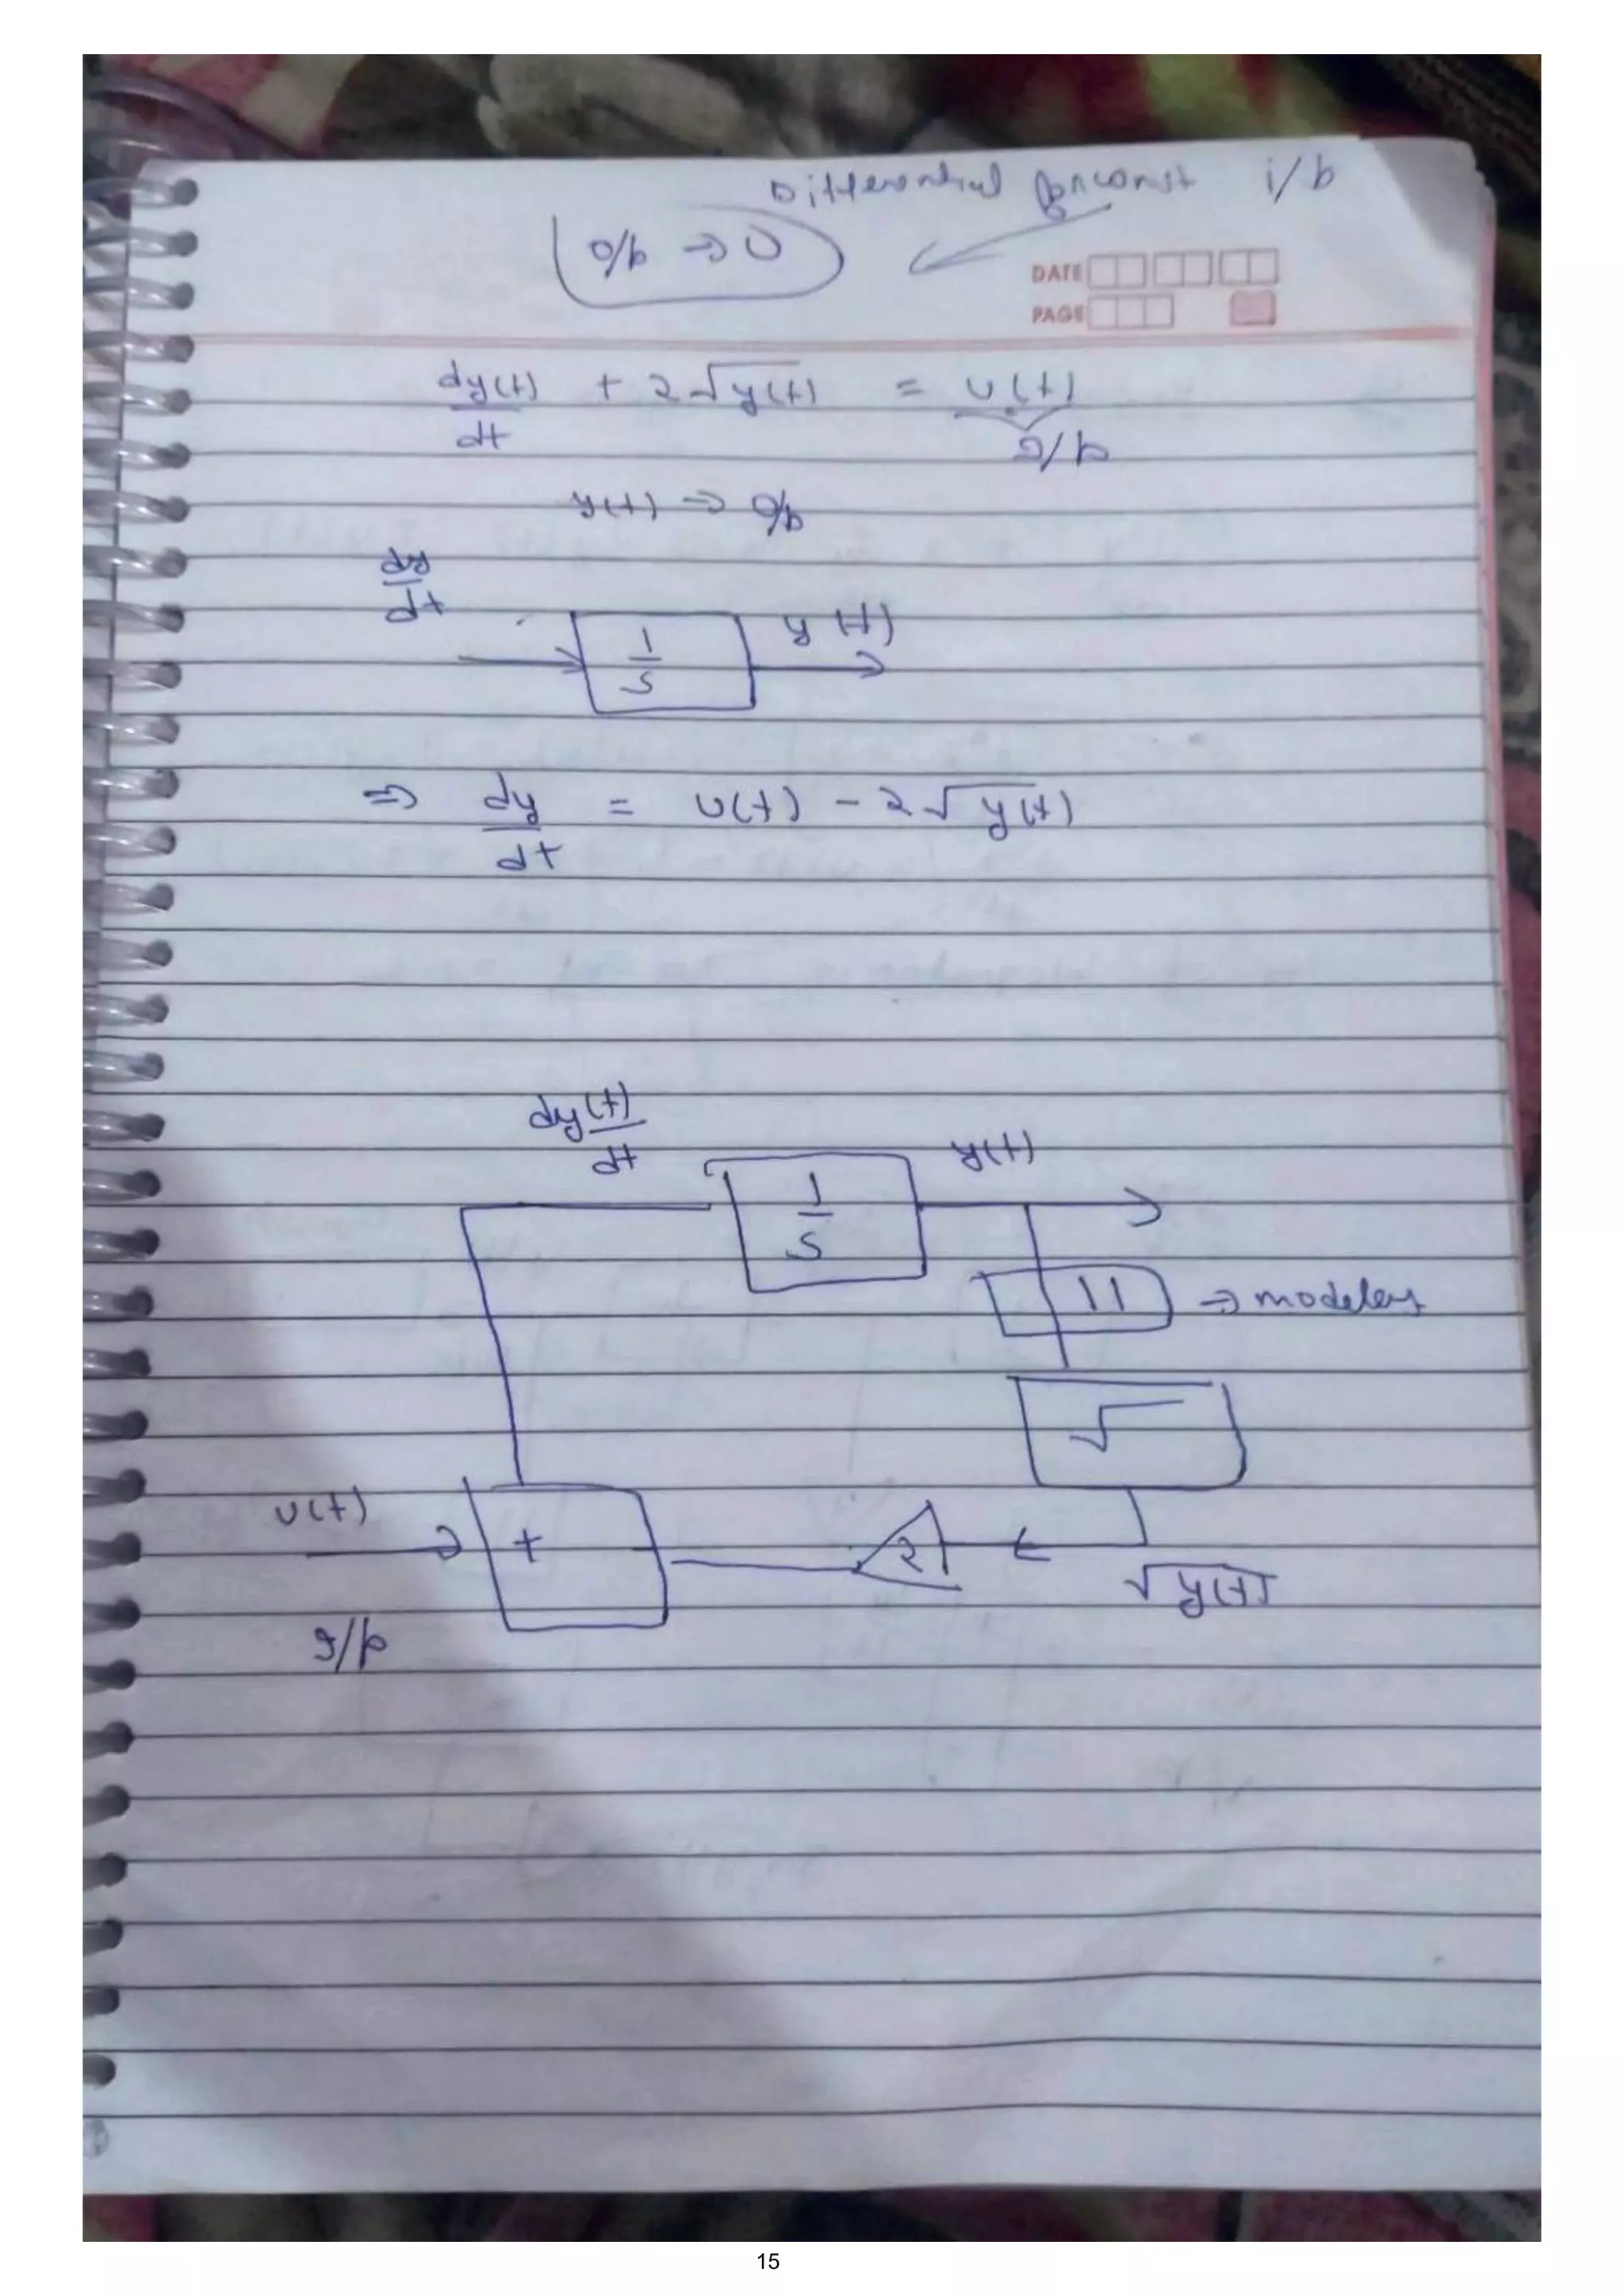 Differential i/p
o/p → U
DATE
PAGE
dy(t)/dt + 2√y(t) = u(t)
I/p
y(t) ⇒ o/p
dy/dt
1/s
y(t)
⇒ dy/dt = u(t) - 2√y(t)
dy(t)/dt
1/s
y(t)
||
√
u(t)
+
2
√y(t)
I/p
15